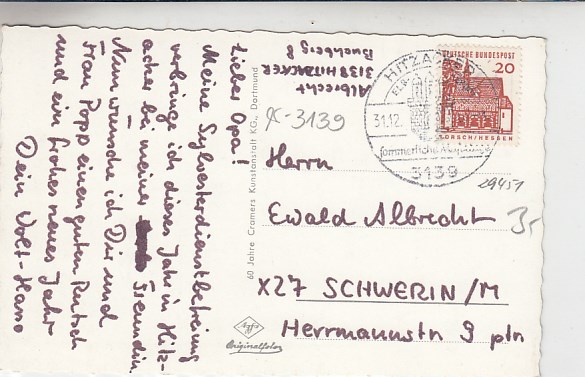 Albrecht
3139 HITZACKER
Buchberg 8
Lieber Opa!
Meine Sylvesterdienstbefreiung
verbringe ich dieses Jahr in Hitz-
acker bei meiner Freundin.
Nun wünsche ich Dir und
Frau Popp einen guten Rutsch
und ein frohes neues Jahr
Dein Wolf-Hasso
60 Jahre Cramers Kunstanstalt KG., Dortmund
Agfa
Originalfoto
HITZACKER
31.12.
3139
DEUTSCHE BUNDESPOST
20
LORSCH/HESSEN
X-3139
29451
3,-
Herrn
Ewald Albrecht
X27 SCHWERIN/M
Herrmannstr 9 ptn